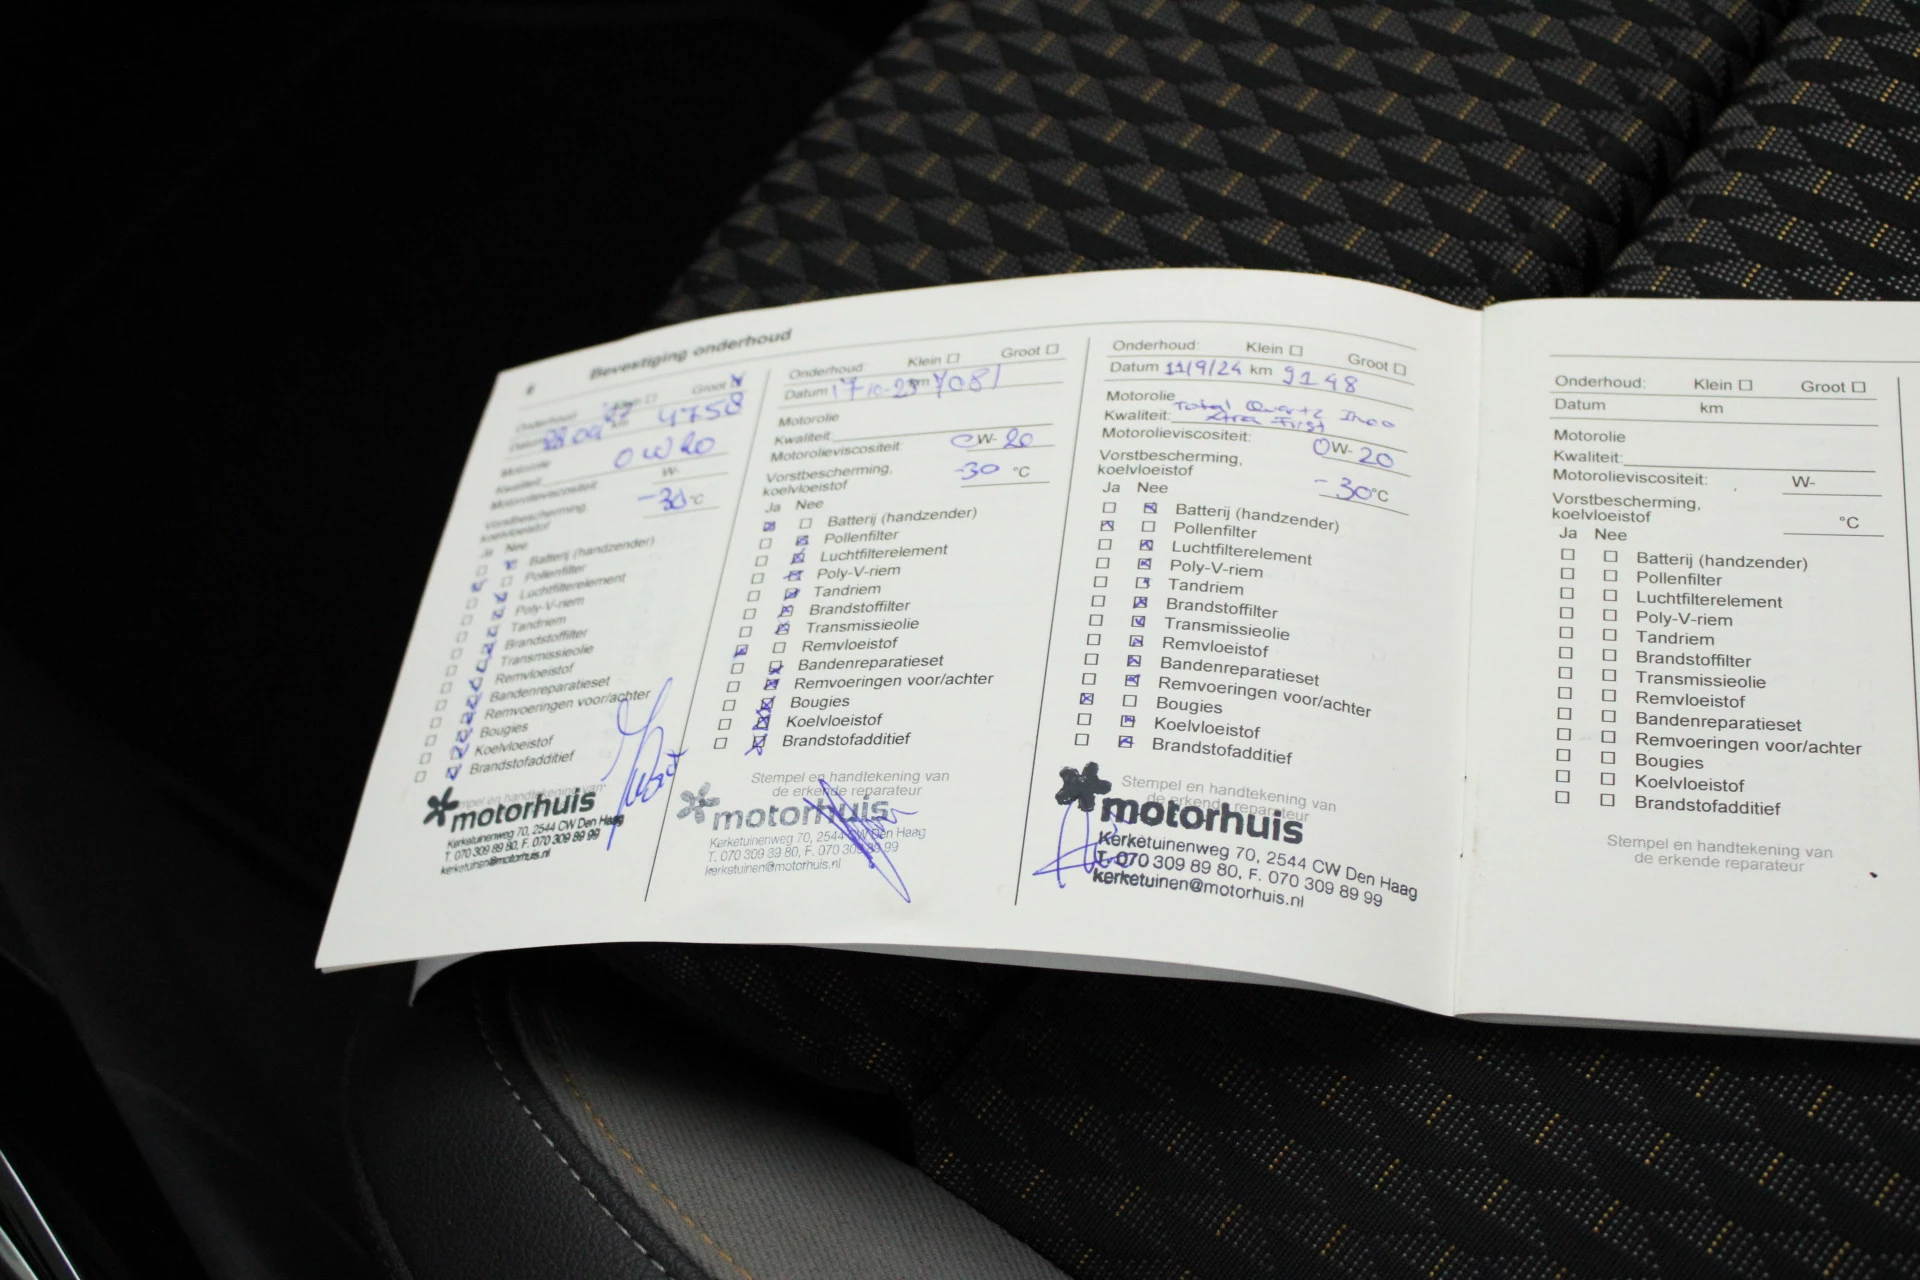 6 Bevestiging onderhoud
Onderhoud Klein Groot
Datum 4758
Motorolie
Kwaliteit 0W20
Motorolieviscositeit: W-
Vorstbescherming, koelvloeistof -30 °C
Ja Nee
Batterij (handzender)
Pollenfilter
Luchtfilterelement
Poly-V-riem
Tandriem
Brandstoffilter
Transmissieolie
Remvloeistof
Bandenreparatieset
Remvoeringen voor/achter
Bougies
Koelvloeistof
Brandstofadditief
Stempel en handtekening van
motorhuis
Kerketuinenweg 70, 2544 CW Den Haag
T. 070 309 89 80, F. 070 309 89 99
kerketuinen@motorhuis.nl
Onderhoud: Klein Groot
Datum 17-10-23 km 7081
Motorolie
Kwaliteit:
Motorolieviscositeit: 0W-20
Vorstbescherming,
koelvloeistof -30 °C
Ja Nee
Batterij (handzender)
Pollenfilter
Luchtfilterelement
Poly-V-riem
Tandriem
Brandstoffilter
Transmissieolie
Remvloeistof
Bandenreparatieset
Remvoeringen voor/achter
Bougies
Koelvloeistof
Brandstofadditief
Stempel en handtekening van
de erkende reparateur
motorhuis
Kerketuinenweg 70, 2544 CW Den Haag
T. 070 309 89 80, F. 070 309 89 99
kerketuinen@motorhuis.nl
Onderhoud: Klein Groot
Datum 11/9/24 km 9148
Motorolie
Kwaliteit: Total Quartz Ineo
Xtra First
Motorolieviscositeit: 0W-20
Vorstbescherming,
koelvloeistof -30 °C
Ja Nee
Batterij (handzender)
Pollenfilter
Luchtfilterelement
Poly-V-riem
Tandriem
Brandstoffilter
Transmissieolie
Remvloeistof
Bandenreparatieset
Remvoeringen voor/achter
Bougies
Koelvloeistof
Brandstofadditief
Stempel en handtekening van
de erkende reparateur
motorhuis
Kerketuinenweg 70, 2544 CW Den Haag
T. 070 309 89 80, F. 070 309 89 99
kerketuinen@motorhuis.nl
Onderhoud: Klein Groot
Datum km
Motorolie
Kwaliteit:
Motorolieviscositeit: W-
Vorstbescherming,
koelvloeistof °C
Ja Nee
Batterij (handzender)
Pollenfilter
Luchtfilterelement
Poly-V-riem
Tandriem
Brandstoffilter
Transmissieolie
Remvloeistof
Bandenreparatieset
Remvoeringen voor/achter
Bougies
Koelvloeistof
Brandstofadditief
Stempel en handtekening van
de erkende reparateur